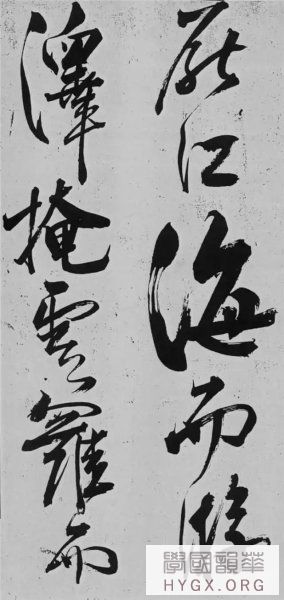 厭江海而游
澤掩雲羅而
學國韻華
HYGX.ORG